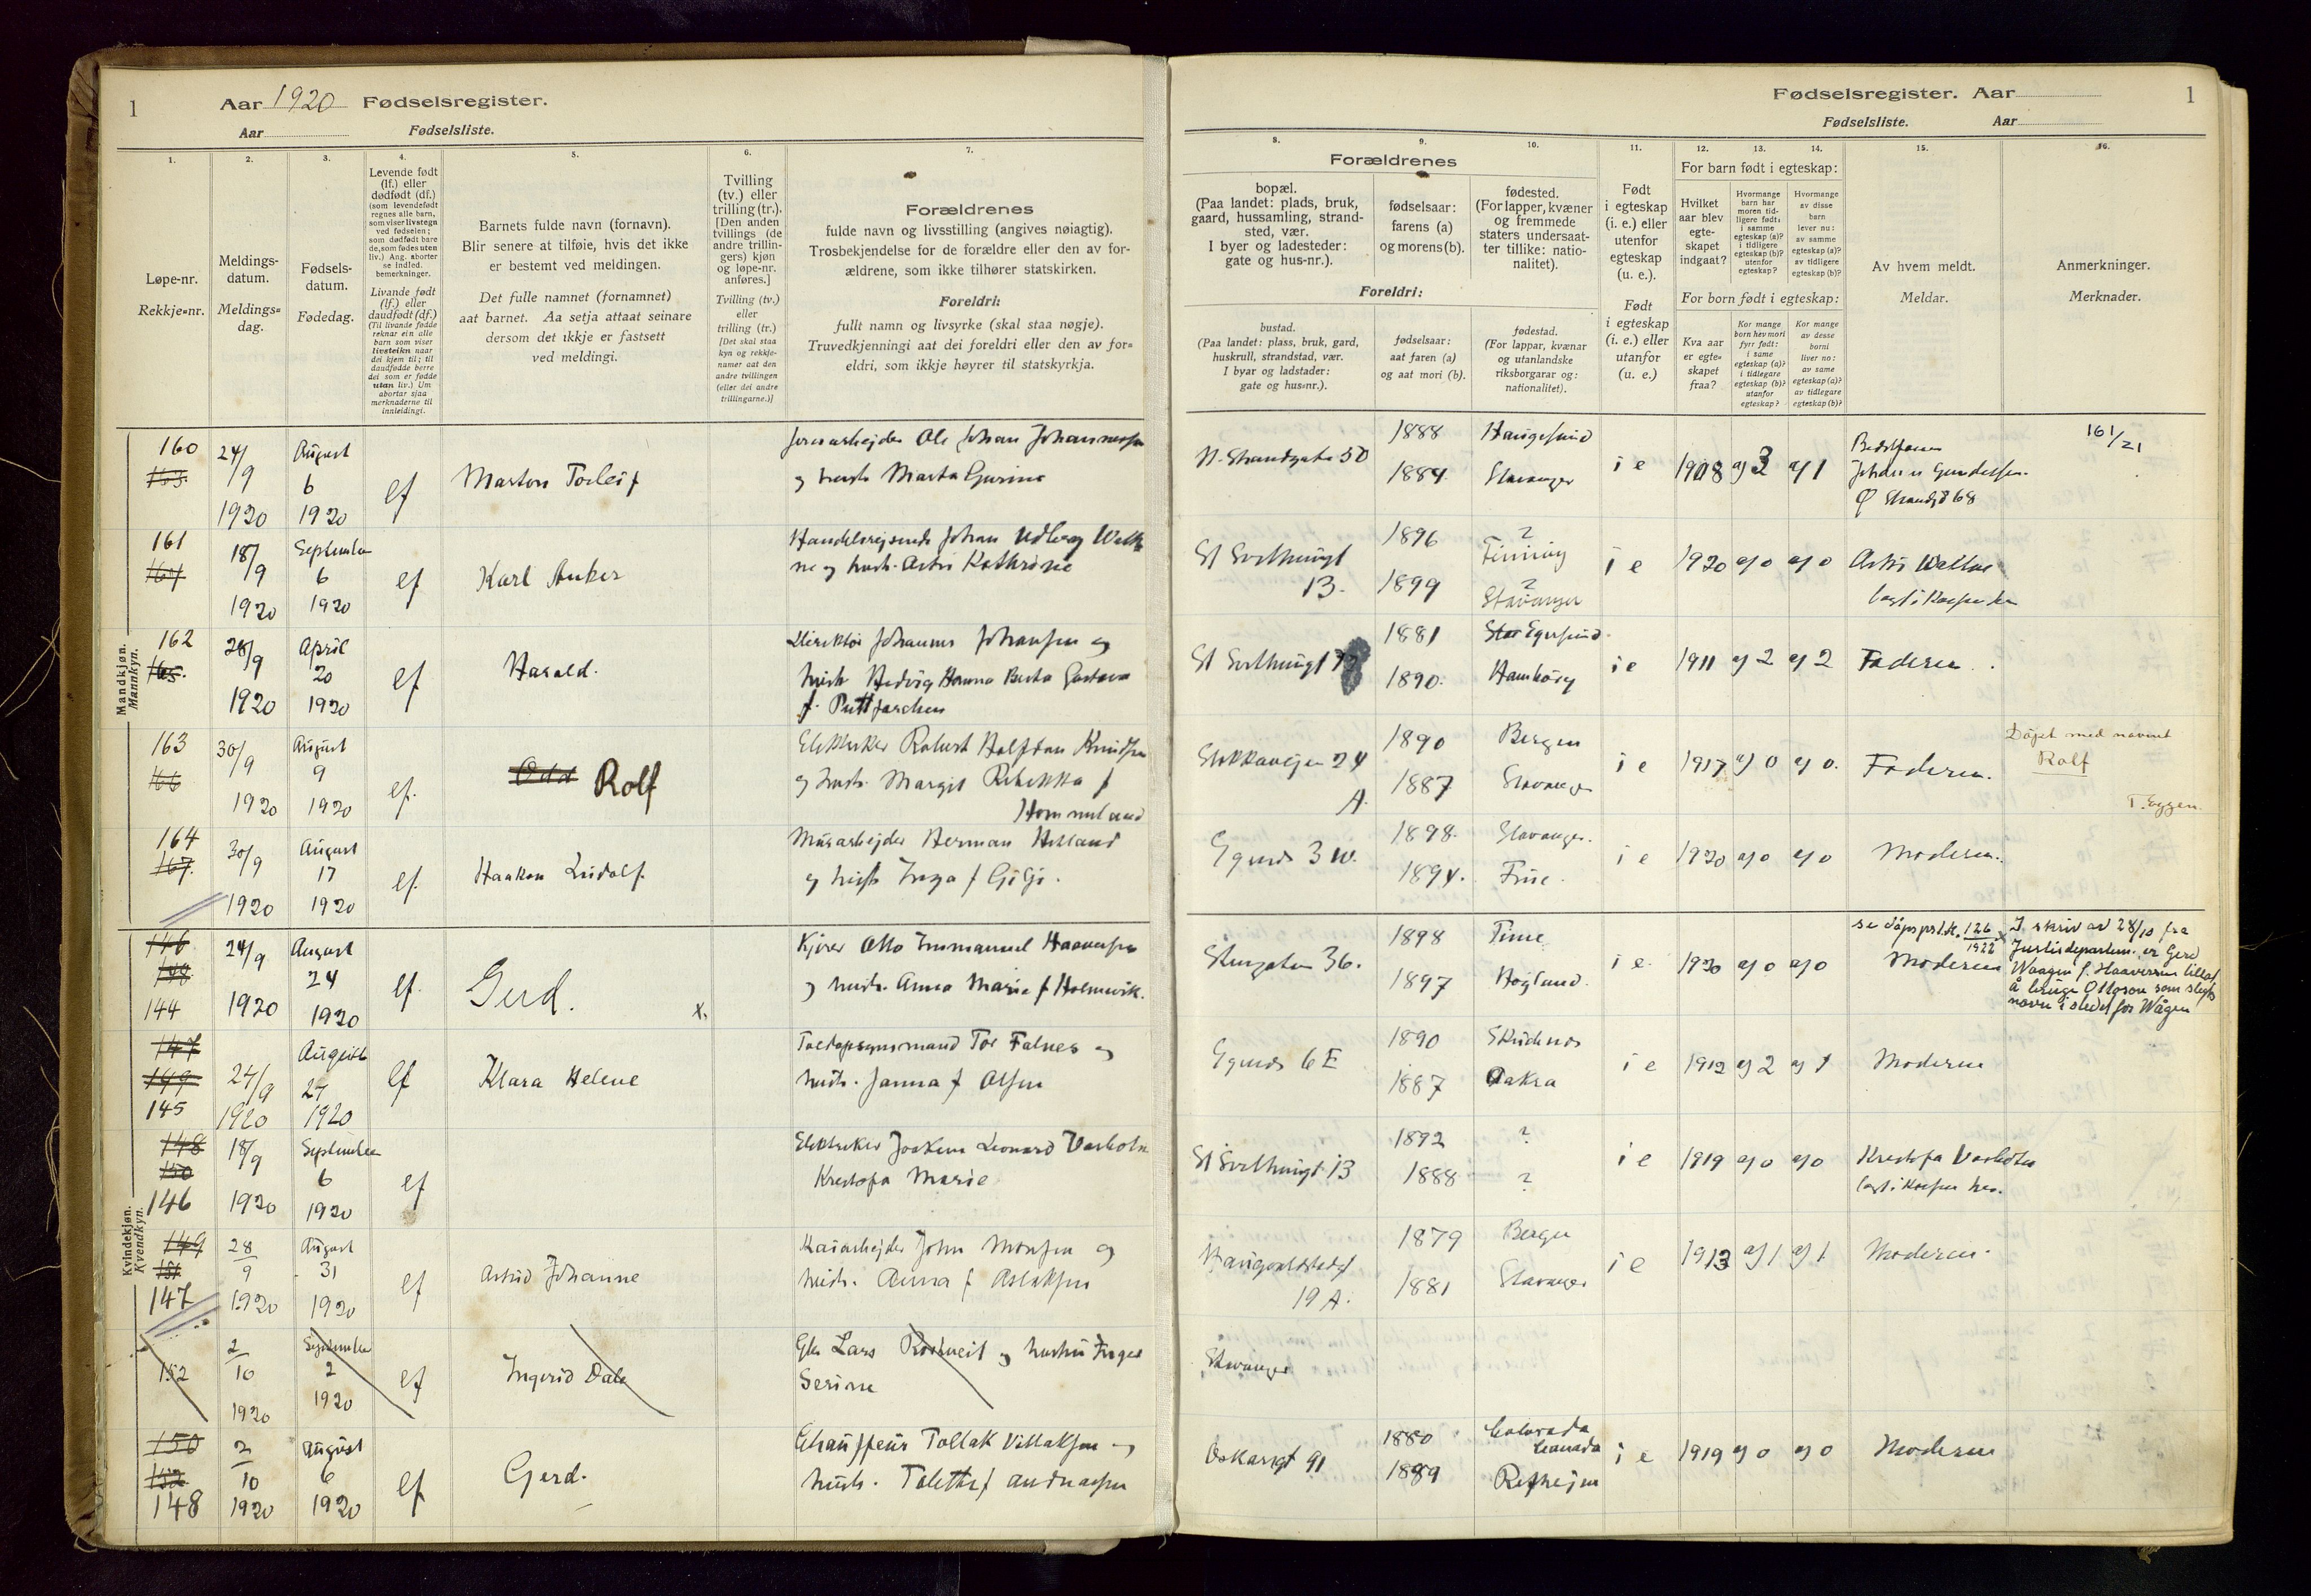 1
Aar 1920 Fødselsregister.
Aar Fødselsliste.
1.
2.
3.
4.
5.
6.
7.
Løpe-nr.
Rekkje=nr.
Meldings-
datum.
Meldings=
dag.
Fødsels-
datum.
Fødedag.
Levende født
(lf.) eller
dødfødt (df.)
(som levendefødt
regnes alle barn,
som viser livstegn
ved fødselen;
som dødfødt bare
de, som fødes uten
liv.) Ang. aborter
se indled.
bemerkninger.
Livande født
(lf.) eller
daudfødt (df.)
(Til livande fødde
reknar ein alle
barn som viser
livsteikn naar
dei kjem til; til
daudfødde berre
dei som er fødde
utan liv.) Um
abortar sjaa
merknaderne til
innleidingi.
Barnets fulde navn (fornavn).
Blir senere at tilføie, hvis det ikke
er bestemt ved meldingen.
Det fulle namnet (fornamnet)
aat barnet. Aa setja attaat seinare
dersom det ikkje er fastsett
ved meldingi.
Tvilling
(tv.) eller
trilling (tr.).
[Den anden
tvillings (de
andre trillin-
gers) kjøn
og løpe-nr.
anføres.]
Tvilling (tv.)
eller
trilling (tr.)
[Det skal staa
kyn og rekkje-
numer aat den
andre tvillingen
(eller dei andre
trillingarne.)]
Forældrenes
fulde navn og livsstilling (angives nøiagtig).
Trosbekjendelse for de forældre eller den av for-
ældrene, som ikke tilhører statskirken.
Foreldri:
fullt namn og livsyrke (skal staa nøgje).
Truvedkjenningi aat dei foreldri eller den av for=
eldri, som ikkje høyrer til statskyrkja.
Mandkjøn.
Mannkyn.
160
24/9
1920
August
6
1920
lf
Marton Torleif
Ole Johan Johannessen
og hustr. Marta Gurine
161
18/9
1920
September
6
1920
lf
Karl Anker
Handelsreisende Johan Udberg
og hustr. Astri Kathrine
162
28/9
1920
April
20
1920
lf
Harald.
Direktør Johannes Johansen og
hustr Hedvig Hanna Berta Gustava
f. Puttfarchen
163
166
30/9
1920
August
9
1920
lf.
Odd Rolf
Elektriker Robert Halfdan Knudsen
og hustr. Margit Rebekka f
Hommeland
164
167.
30/9
1920
August
17
1920
lf.
Haakon Ludolf.
Murarbejder Herman Helland
og hustr Inga f Gjgi.
Kvindekjøn.
Kvendkyn.
146
148
144
24/9
1920
August
24
1920
lf.
Gerd.
x.
Kjører Otto Immanuel Haaversen
og hustr. Anna Marie f Holmevik.
147
149
145
24/9
1920
August
27
1920
lf
Klara Helene
Toldopsynsmand Tor Falnes og
hustr. Janna f Olsen
148
150
146
18/9
1920
September
6
1920
lf
Elektriker Joakim Leonard
Krestofa Marie
149
151
147
28
9
1920
August
31
1920
lf
Astrid Johanne
Kaiarbejder John Monsen og
hustr. Anna f Aslaksen
152
2
10
1920
September
2
1920
lf
Ingerid Dale
Lars Rosseveit og hustru Inger
Serine
150
152
148
2
10
1920
August
6
1920
lf
Gerd.
Chauffeur Tollak Villaksen og
hustr. Talette f Andreassen
Fødselsregister. Aar
1
Fødselsliste. Aar
8.
9.
10.
11.
12.
13.
14.
15.
16.
Forældrenes
bopæl.
(Paa landet: plads, bruk,
gaard, hussamling, strand-
sted, vær.
I byer og ladesteder:
gate og hus-nr.).
fødselsaar:
farens (a)
og morens (b).
fødested.
(For lapper, kvæner
og fremmede
staters undersaat-
ter tillike: natio-
nalitet).
Foreldri:
bustad.
(Paa landet: plass, bruk, gard,
huskrull, strandstad, vær.
I byar og ladstader:
gate og hus=nr.).
fødselsaar:
aat faren (a)
og aat mori (b).
fødestad.
(For lappar, kvænar
og utanlandske
riksborgarar og:
nationalitet).
Født
i egteskap
(i. e.) eller
utenfor
egteskap
(u. e.).
Født
i egteskap
(i. e.) eller
utanfor
(u. e.)
For barn født i egteskap:
Hvilket
aar blev
egte-
skapet
indgaat?
Hvormange
barn har
moren tid-
ligere født:
i samme
egteskap (a)?
i tidligere
egteskap (b)?
utenfor
egteskap?
Hvormange
av disse
barn
lever nu:
av samme
egteskap (a)?
av tidligere
egteskap (b)?
For born født i egteskap:
Kva aar
er egte=
skapet
fraa?
Kor mange
born hev mori
fyrr født:
i same
egteskap (a)?
i tidlegare
egteskap (b)?
utanfor
egteskap?
Kor mange
av desse
borni
liver no:
av same
egteskap (a)?
av tidlegare
egteskap (b)?
Av hvem meldt.
Meldar.
Anmerkninger.
Merknader.
N. Strandgate 50
1888
1884
Haugesund
Stavanger
i e
1908
a/ 3
a/ 1
Bedstfaren
Johan Gundersen
Ø Strandgt 68
161/21
St Svithungt
13.
1896
1899
?
Finnøy
?
Stavanger
i e
1920
a/ 0
a/ 0
Astri
St Svithungt
1881
1890.
Egersund.
Hamburg
i e
1911
a/ 2
a/ 2
Faderen.
Stokkaveien 24
A.
1890
1887
Bergen
Stavanger
i e
1917
a/ 0
a/ 0.
Faderen.
Døpt med navnet
Rolf
T. Eggen.
Egnds 3 w.
1898.
1894.
Stavanger.
Time.
i e
1920
a/ 0
a/ 0
Moderen.
Stengaten 36.
1898
1897
Time
Høgland.
i e.
1920
a/ 0
a/ 0
se dåpsprt. nr. 126
1922
Moderen
I skriv av 28/10 fra
Justisdepartem. er Gerd
Waagen f. Haaversen tillatt
å bruge Ottoson som slegts
navn i stedet for Wågen
Egnds 6 E
1890
1887
Skudenes
Aakra
i e
1912
a/ 2
a/ 1
Moderen
St Svithungt. 13
1892
1888
?
?
i e
1919
a/ 0
a/ 0
Krestofa
Haugvaldstadgt
19 A.
1879
1881
Bergen
Stavanger
i e
1913
a/ 1
a/ 1
Moderen.
Stavanger
Oskarsgt 91
1880
1889
Colorada
Canada
Refheim
i e
1919
a/ 0
a/ 0
Moderen